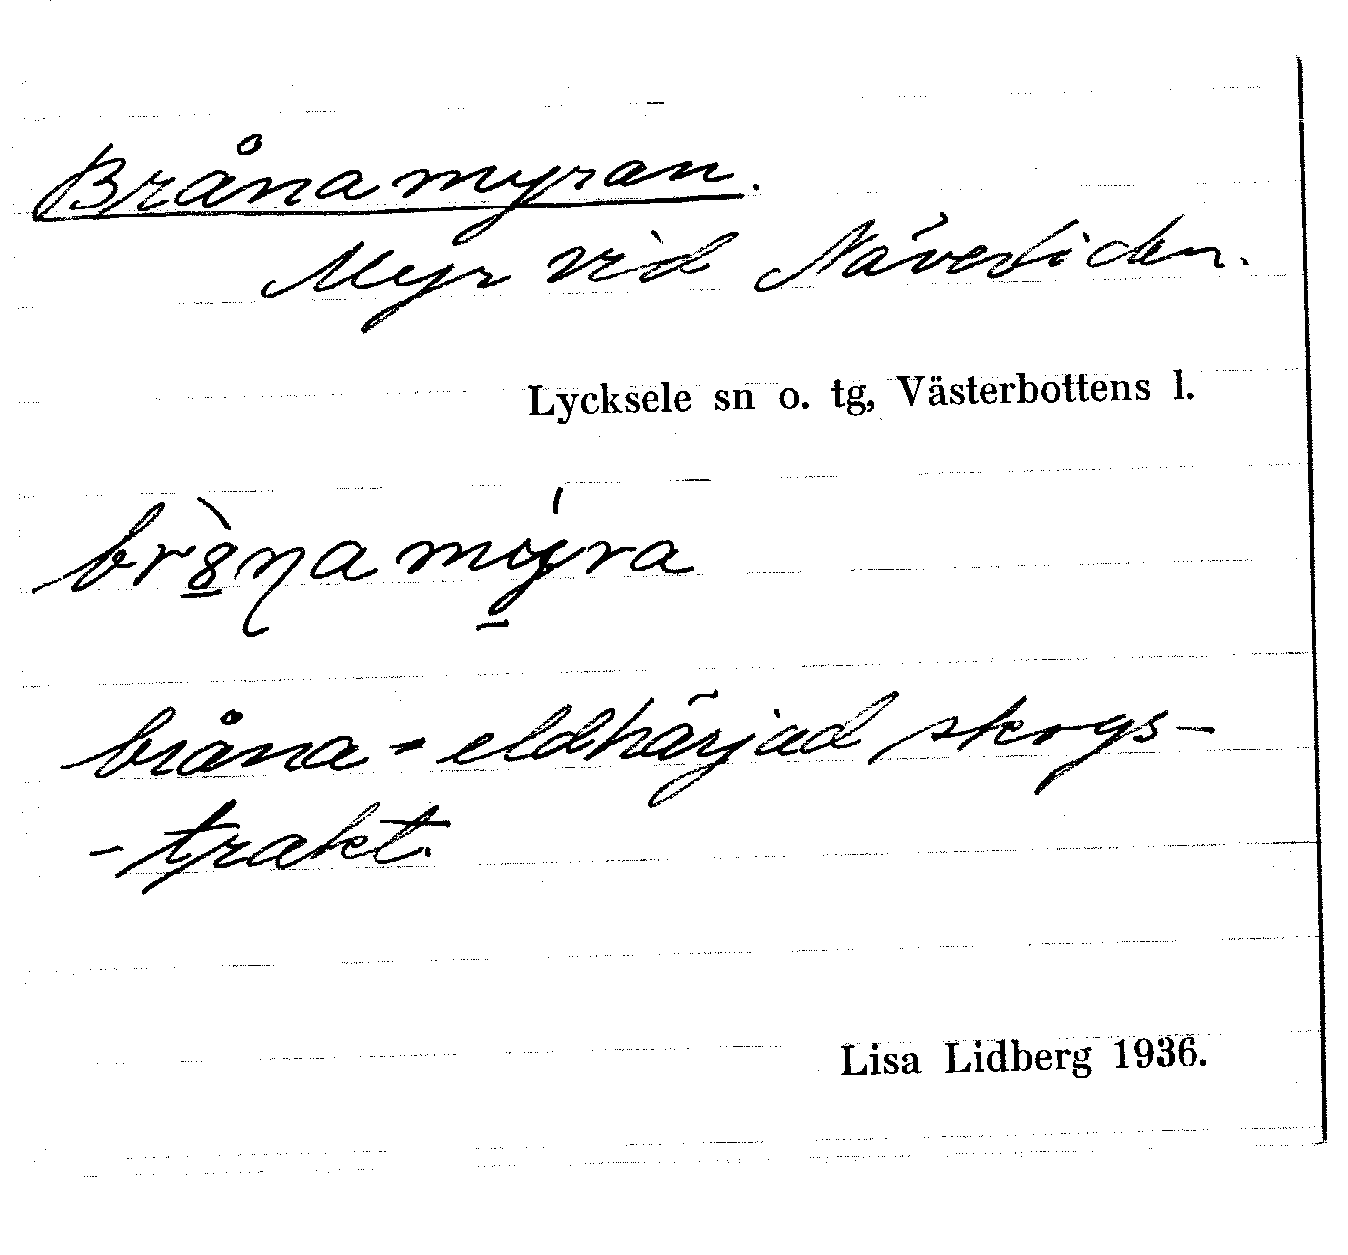 Brånamyran.
Myr vid Näverliden.
Lycksele sn o. tg, Västerbottens l.
bråna = eldhärjad skogs-
-trakt.
Lisa Lidberg 1936.